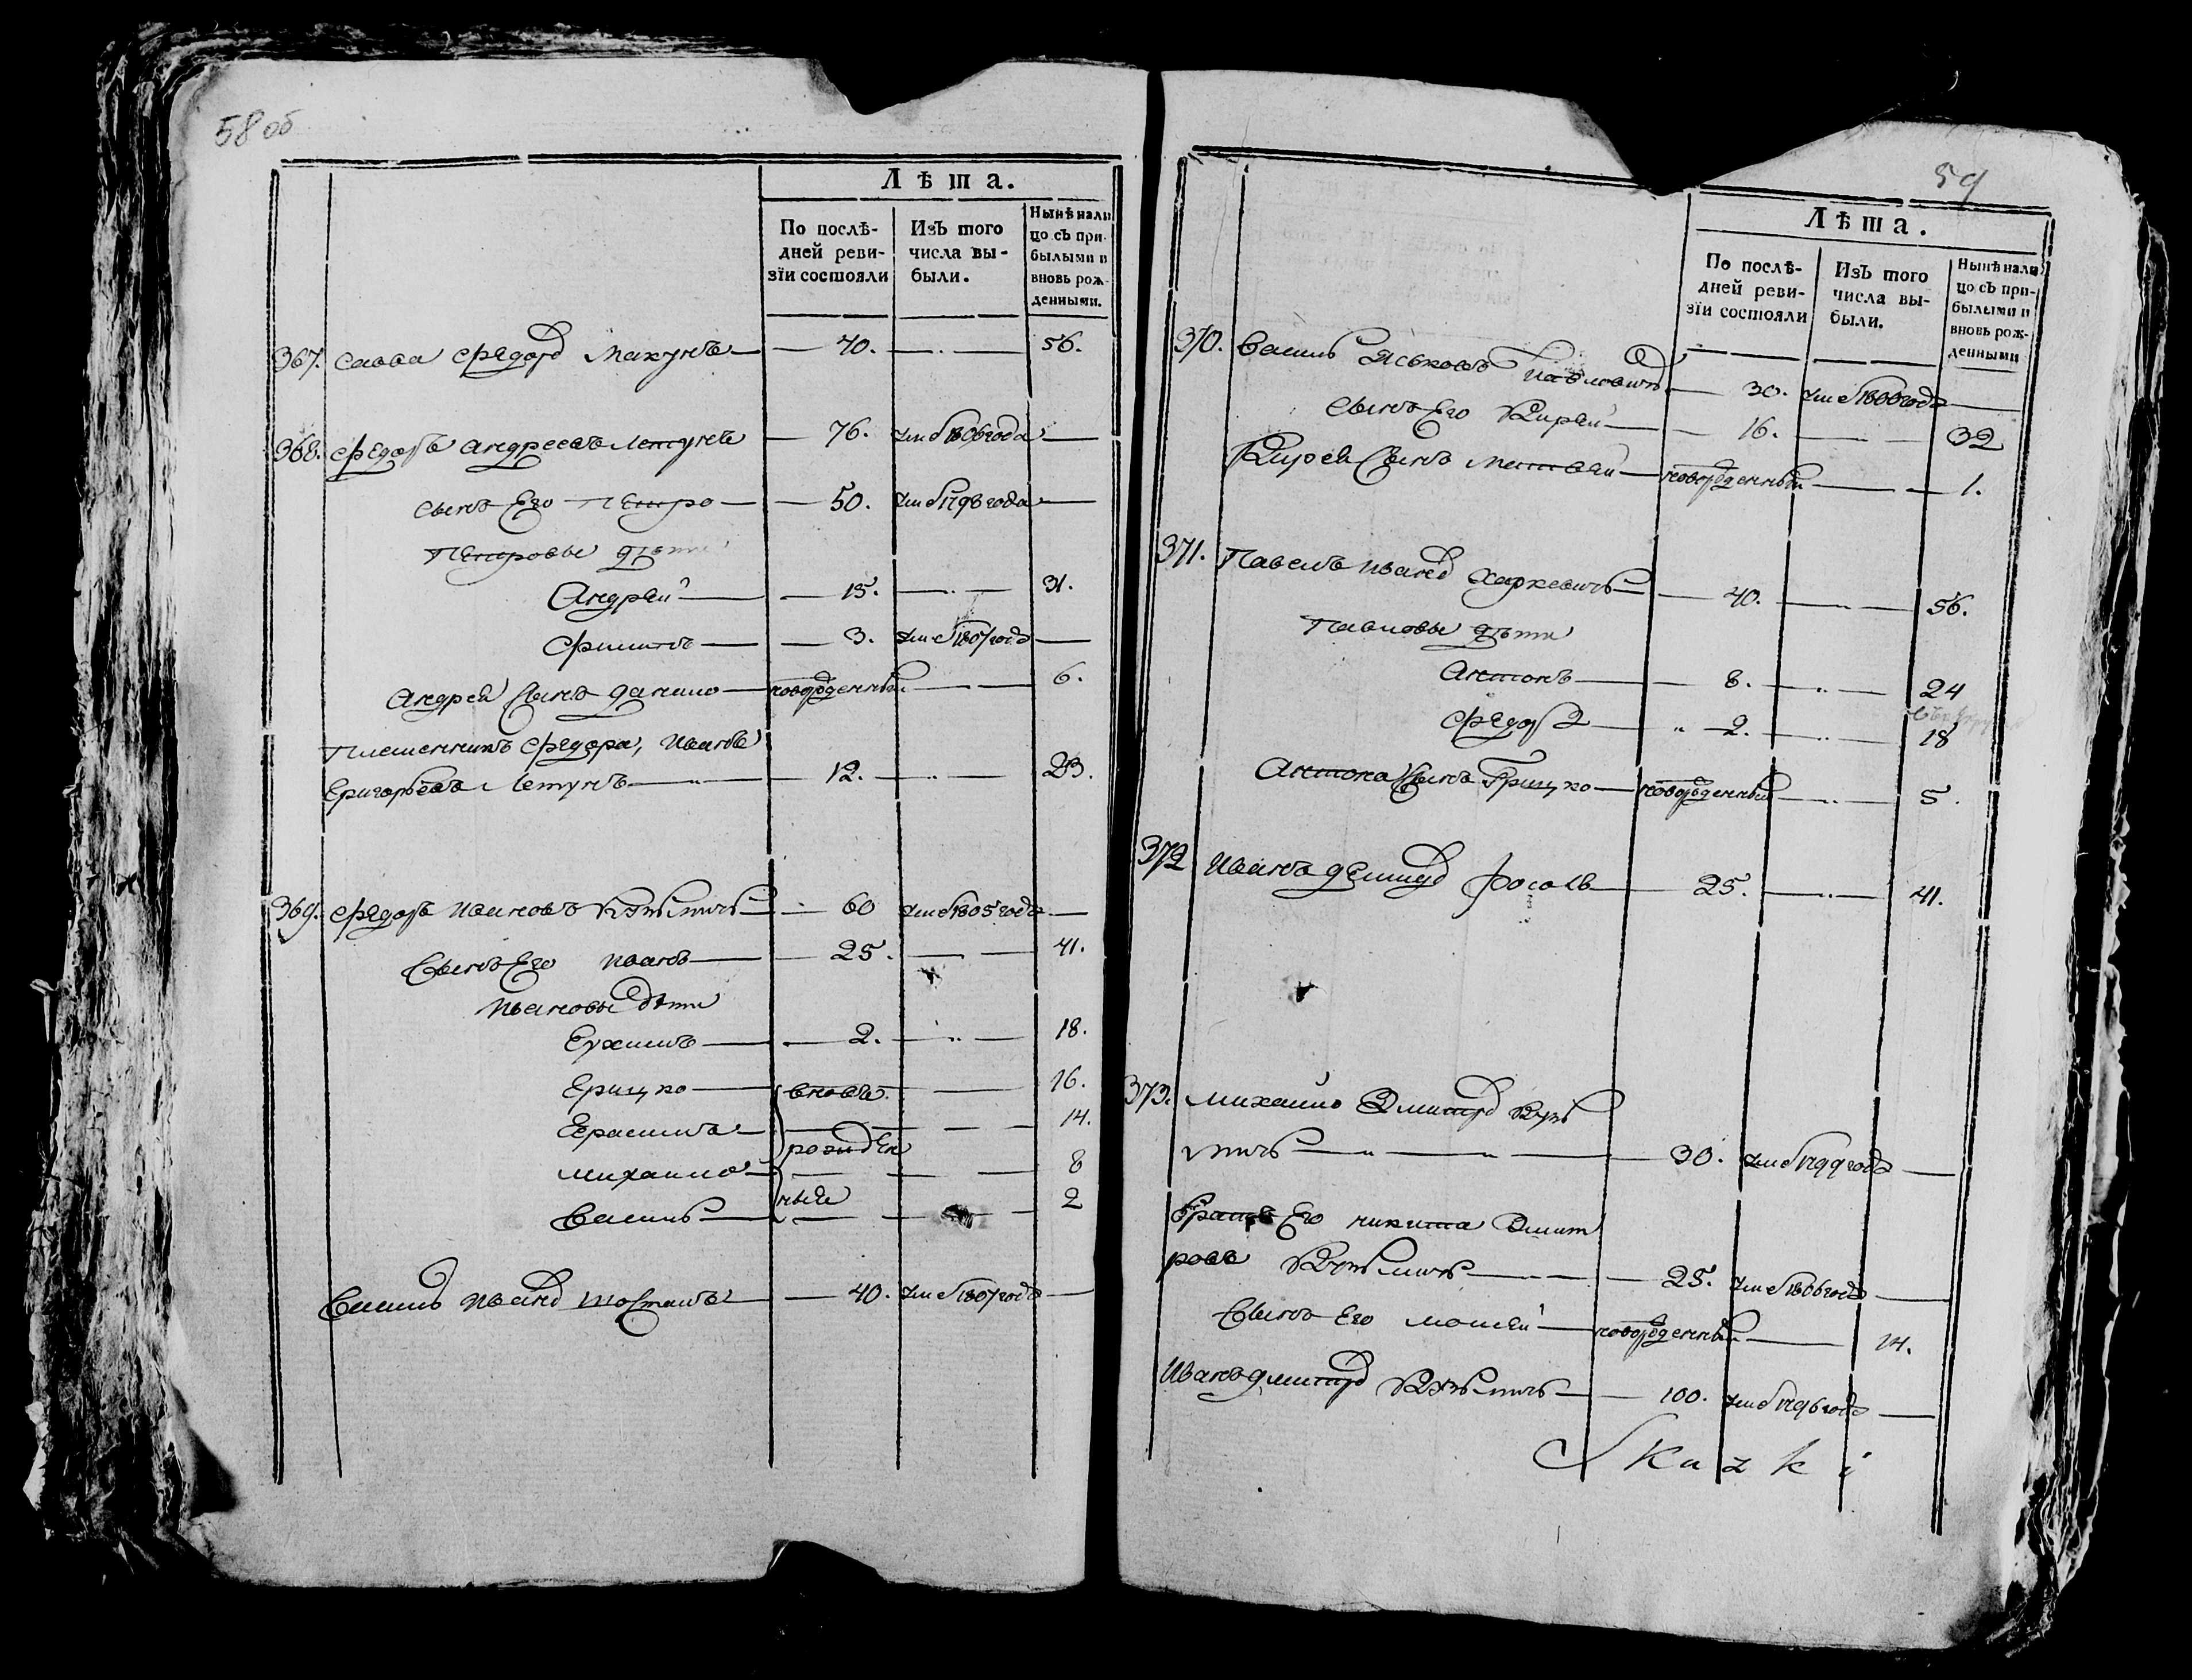 58 об
Лѣта.
По послѣ-
дней реви-
зїи состояли
Изъ того
числа вы-
были.
Нынѣ нали
цо съ при-
былыми и
вновь рож-
денными.
367. Савва Федоровъ Макунъ — 40. — 56.
368. Федоръ Андреевъ Летунъ — 76. умеⷬ 1806 года —
сынъ Его Петро — 50. умеⷬ 1796 года —
Петровы дѣти
Андрей — 15. — 31.
Филипъ — 3. умеⷬ 1807 года —
Андрея сынъ Данило — новорожденный — 6.
Племенникъ Федора, Иванъ
Григорьевъ Летунъ — 12. — 23.
369. Федоръ Ивановъ — 60 умеⷬ 1805 года —
Сынъ Его Иванъ — 25. — 41.
Ивановы дѣти
Евхимъ — 2. — 18.
Грицко — вновь — 16.
Герасимъ — 14.
рожден
Михайло — 8
ные
Василь — 2
Василь Ивановъ — 40. умеⷬ 1807 года —
59
Лѣта.
По послѣ-
дней реви-
зїи состояли
Изъ того
числа вы-
были.
Нынѣ нали
цо съ при-
былыми и
вновь рож-
денными
370. Василь Яськовъ Павловичъ — 30. умеⷬ 1806 года —
сынъ Его Кирей — 16. — 32
Кирея сынъ Матвей — новорожденный — 1.
371. Павелъ Ивановъ Харкевичъ — 40. — 56.
Павловы дѣти
Антонъ — 8. — 24
Федоръ — 2. — 18
Антона сынъ Грицко — новорожденный — 5.
372 Иванъ Демидовъ — 25. — 41.
373. Михайло Дмитровъ
— 30. умеⷬ 1799 года —
Братъ Его Никита Дмит
ровъ — 25. умеⷬ 1806 года —
Сынъ Его Мойсей — новорожденный — 14.
Иванъ Дмитровъ — 100. умеⷬ 1796 года —
Skazki